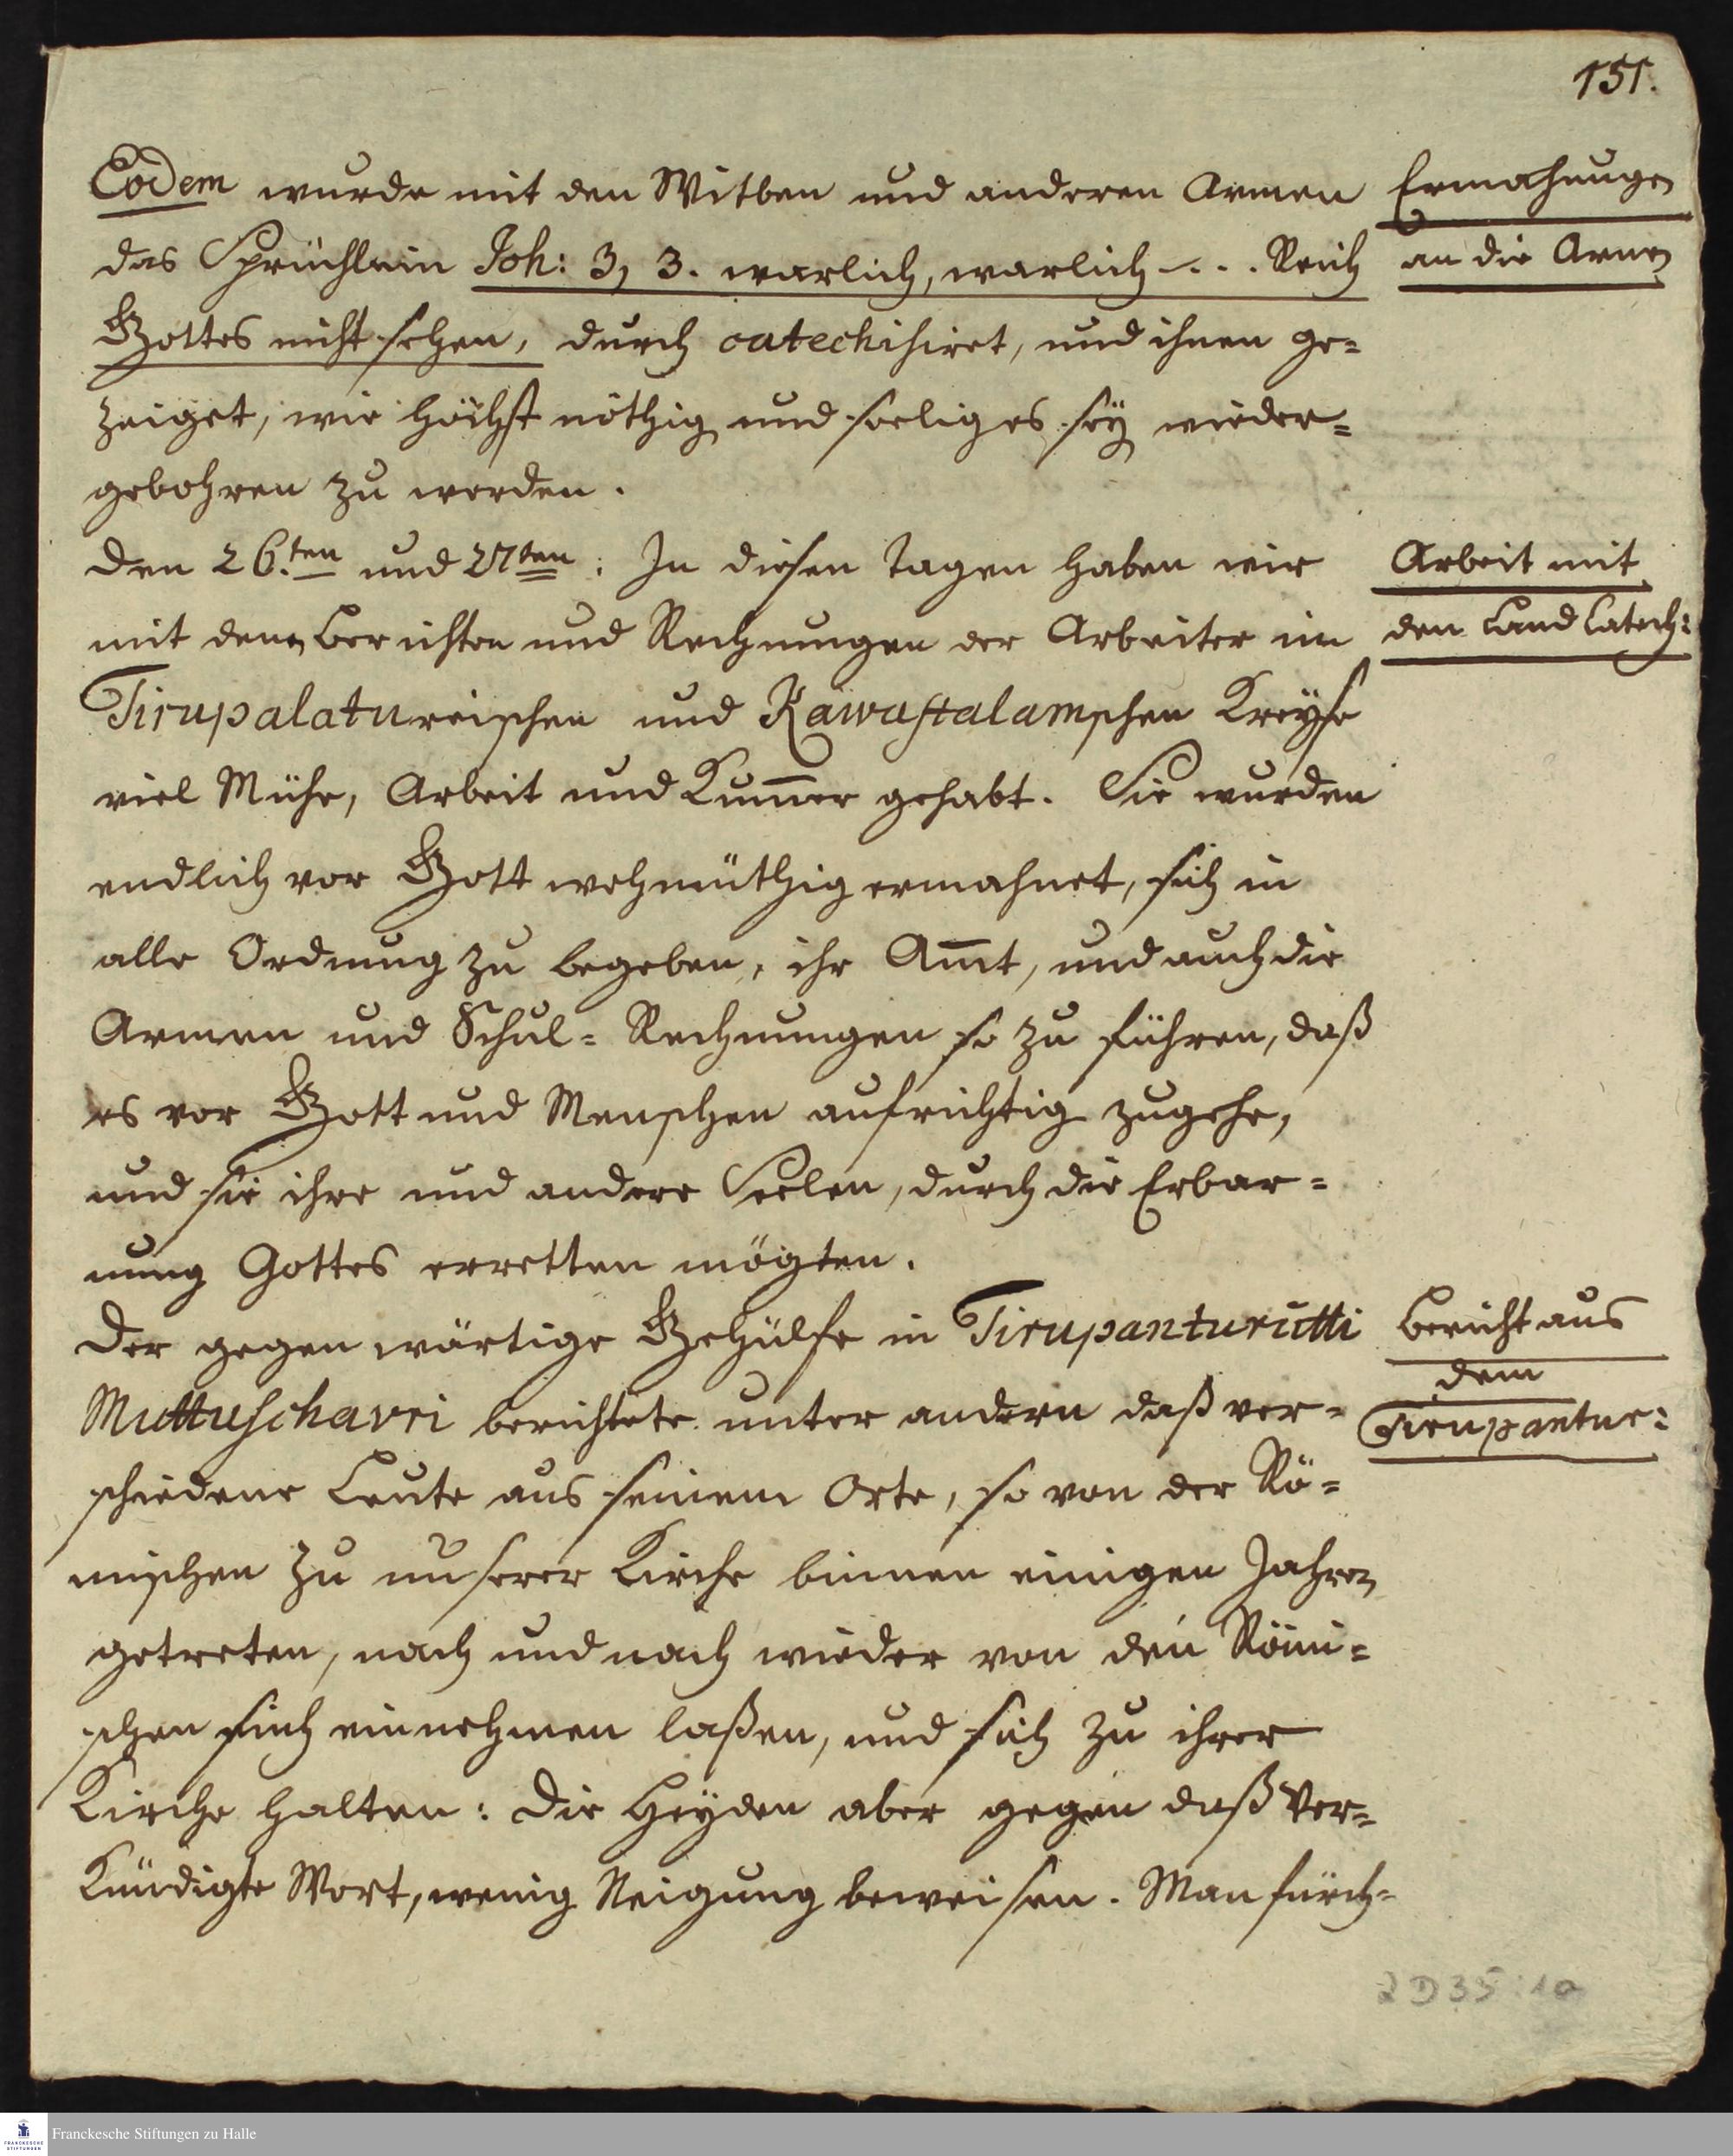 151.
Eodem wurde mit den Witben und anderen Armen
Ermahnungen
das Sprüchlein Joh: 3, 3. warlich, warlich -... Reich
an die Armen
Gottes nicht sehen, durch catechisiret, und ihnen ge=
zeiget, wie höchst nöthig und seelig es sey wieder=
gebohren zu werden.
den 26.ten und 27ten: In diesen Tagen haben wir
Arbeit mit
mit denen Berichten und Rechnungen der Arbeiter im
den Land Catech:
Tirupalatureischen und Käwastalamschen Kreyse
viel Mühe, Arbeit und Kum̄er gehabt. Sie wurden
endlich vor Gott wehmüthig ermahnet, sich in
alle Ordnung zu begeben, ihr Am̄t, und auch die
Armen und Schul= Rechnungen so zu führen, daß
es vor Gott und Menschen aufrichtig zugehe,
und sie ihre und andere Seelen, durch die Erbar=
mung Gottes erretten mögten.
Der gegenwärtige Gehülfe in Tirupanturutti
Bericht aus
dem
Muttuschavri berichtete unter andern daß ver=
Tirupantur:
schiedene Leute aus seinem Orte, so von der Rö=
mischen zu unserer Kirche binnen einigen Jahren
getreten, nach und nach wieder von den Römi=
schen sich einnehmen laßen, und sich zu ihrer
Kirche halten: Die Heyden aber gegen daß Ver=
kündigte Wort, wenig Neigung beweisen. Man fürch=
2 D35:10
Franckesche Stiftungen zu Halle
FRANCKESCHE
STIFTUNGEN